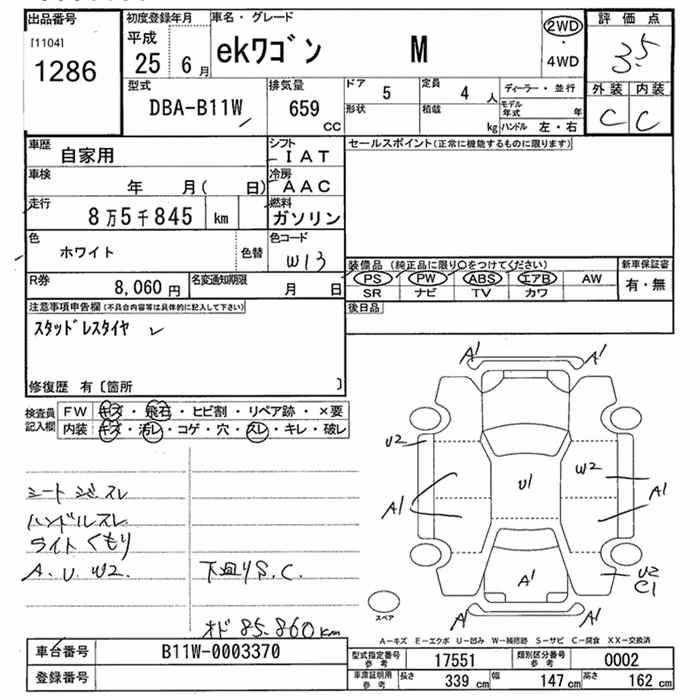 出品番号
[1104]
1286
初度登録年月
平成
25 6月
車名・グレード
ekワゴン M
2WD
・
4WD
評価点
3.5
外装 内装
C C
型式
DBA-B11W
排気量
659
CC
ドア 5
定員 4 人
形状
積載 kg
ディーラー・並行
モデル年式 年
ハンドル 左・右
車歴
自家用
シフト
IAT
車検
年 月( 日)
冷房
AAC
走行
8万5千845 km
燃料
ガソリン
色
ホワイト
色替
色コード
W13
R券
8,060円
名変通知期限
月 日
セールスポイント(正常に機能するものに限ります)
装備品(純正品に限り○をつけてください)
PS PW ABS エアB AW
SR ナビ TV カワ
新車保証書
有・無
後日品
注意事項申告欄(不具合内容等は具体的に記入して下さい)
スタッドレスタイヤ
修復歴 有〔箇所 〕
検査員
記入欄
FW キズ・飛石・ヒビ割・リペア跡・×要
内装 キズ・汚レ・コゲ・穴・スレ・キレ・破レ
ハンドルスレ
ライトくもり
A.U.W2.
下廻りS.C.
オド85.860km
A1 A1
U2
A1
U1
W2
A1
A1
U2
C1
A1 A1
スペア
A−キズ E−エクボ U−凹み W−補修跡 S−サビ C−腐食 XX−交換済
車台番号
B11W-0003370
登録番号
型式指定番号
参考
17551
類別区分番号
参考
0002
車庫証明用
参考
長さ 339 cm
幅 147 cm
高さ 162 cm